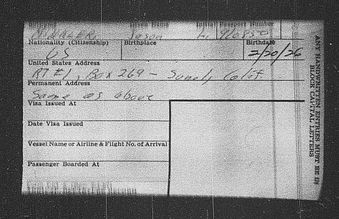 Nationality (Citizenship) Birthplace Birthdate
US 2/20/26
United States Address
RT #1, Box 269 -
Permanent Address
Same as above
Visa Issued At
Date Visa Issued
Vessel Name or Airline & Flight No. of Arrival
Passenger Boarded At
ANY HANDWRITTEN ENTRIES MUST BE IN
BLOCK CAPITAL LETTERS